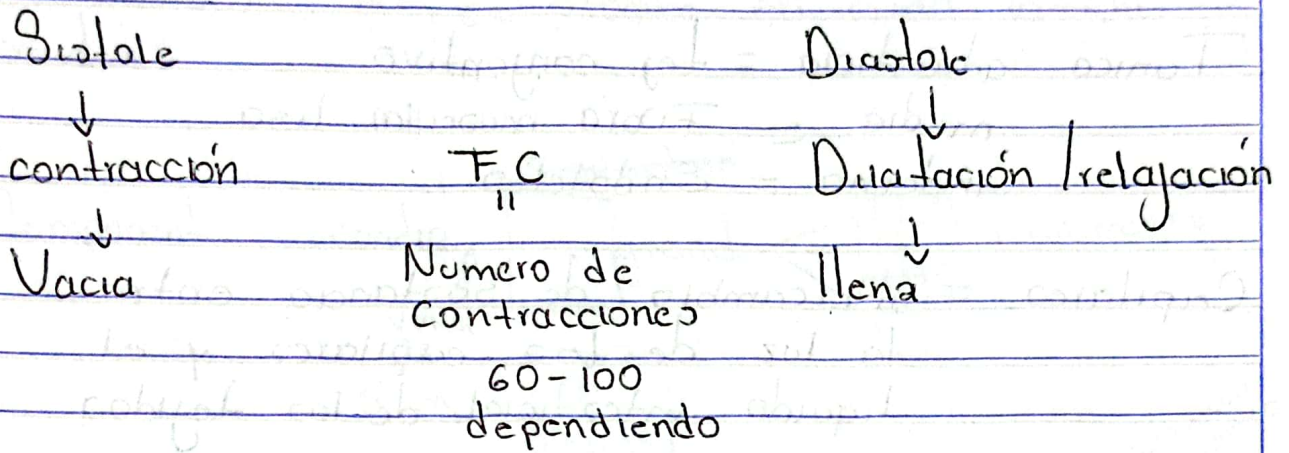 Sistole
↓
contracción
↓
Vacia
FC
=
Numero de
contracciones
60-100
dependiendo
Diastole
↓
Dilatación / relajación
↓
llena